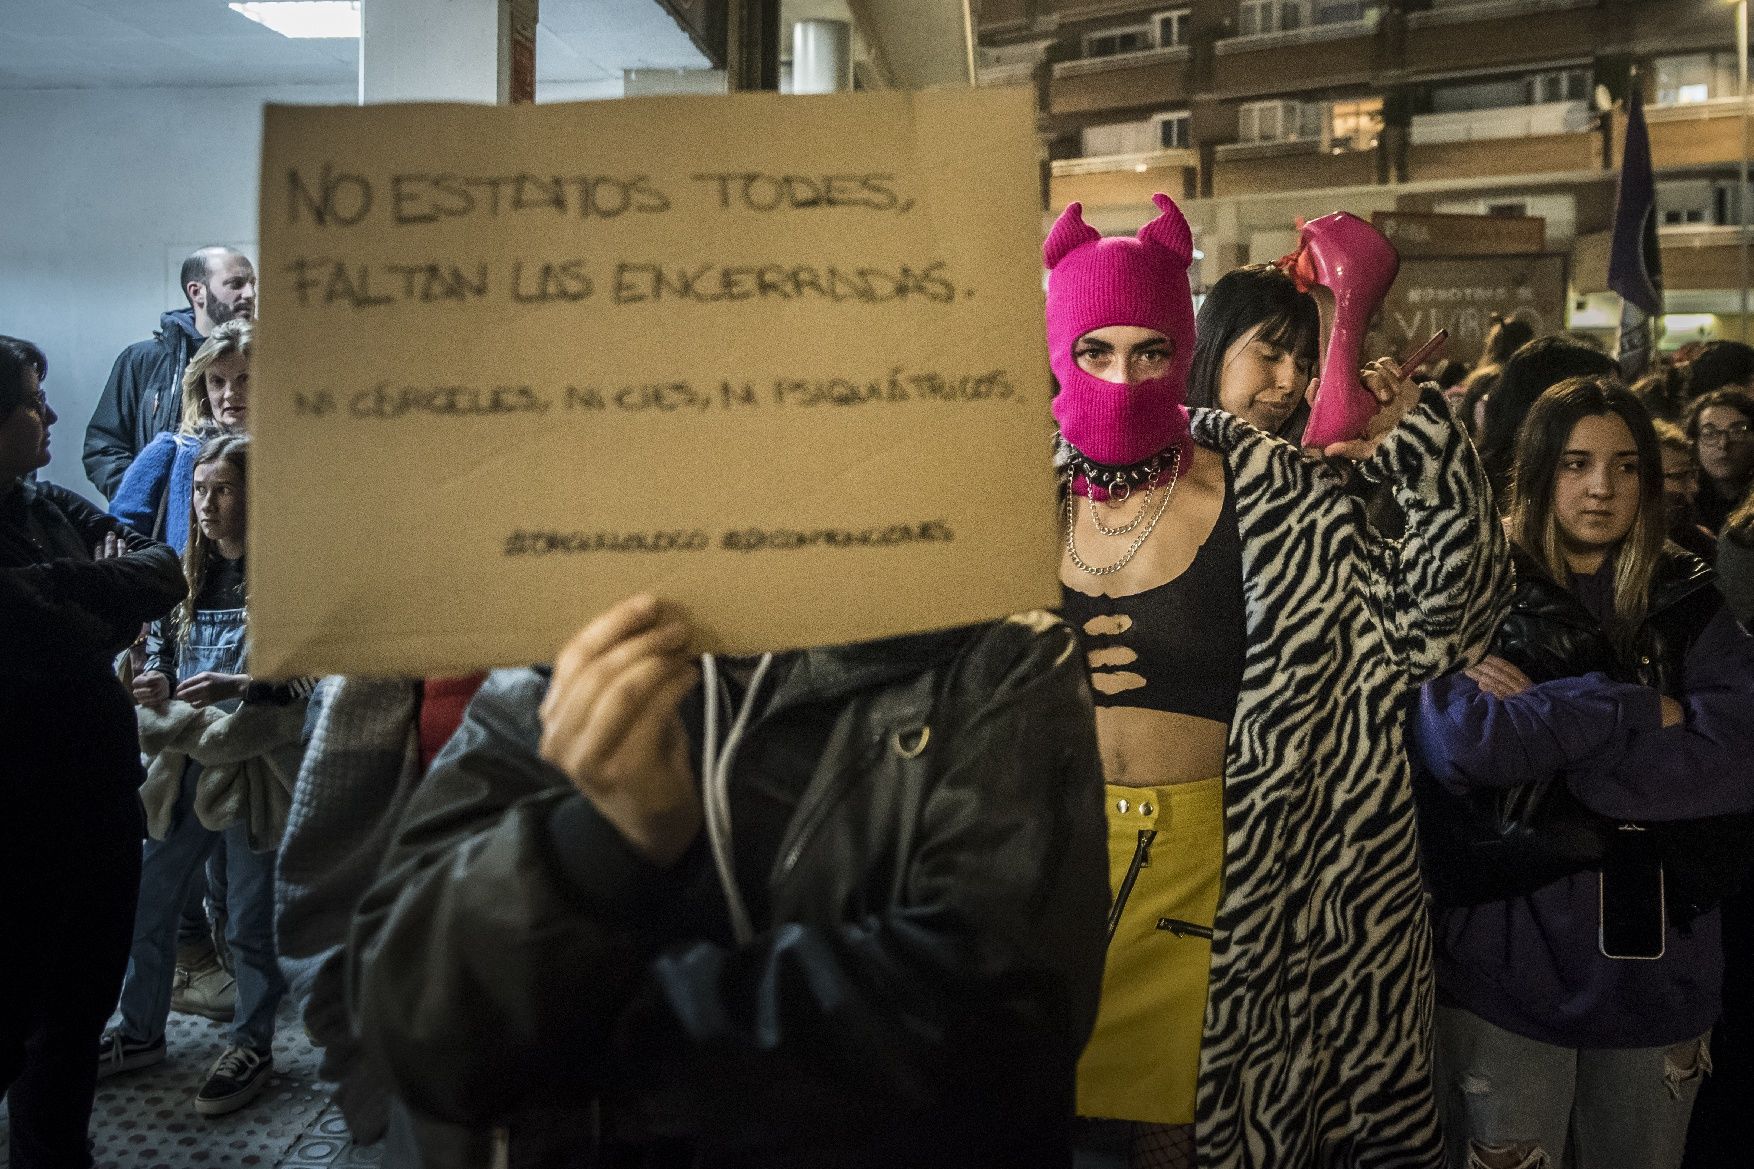 NO ESTAMOS TODES,
FALTAN LAS ENCERRADAS.
NI CÁRCELES, NI CIES, NI PSIQUIÁTRICOS.
#ORGULLOLOCO